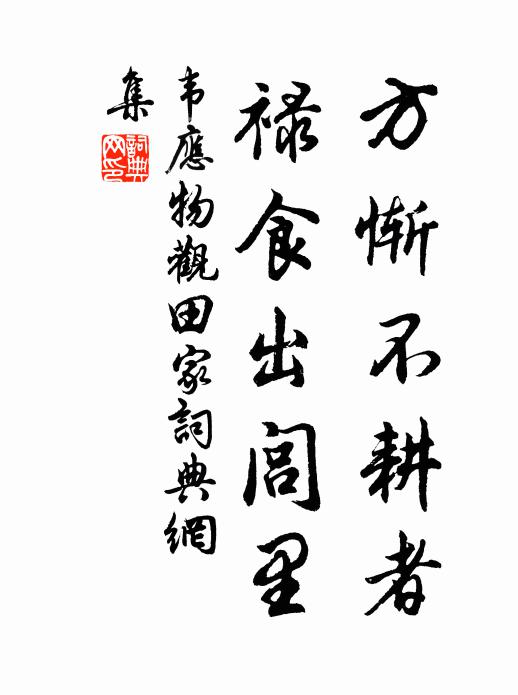 方慚不耕者
禄食出閭里
韦應物觀田家詞典網
集
詞典
网印